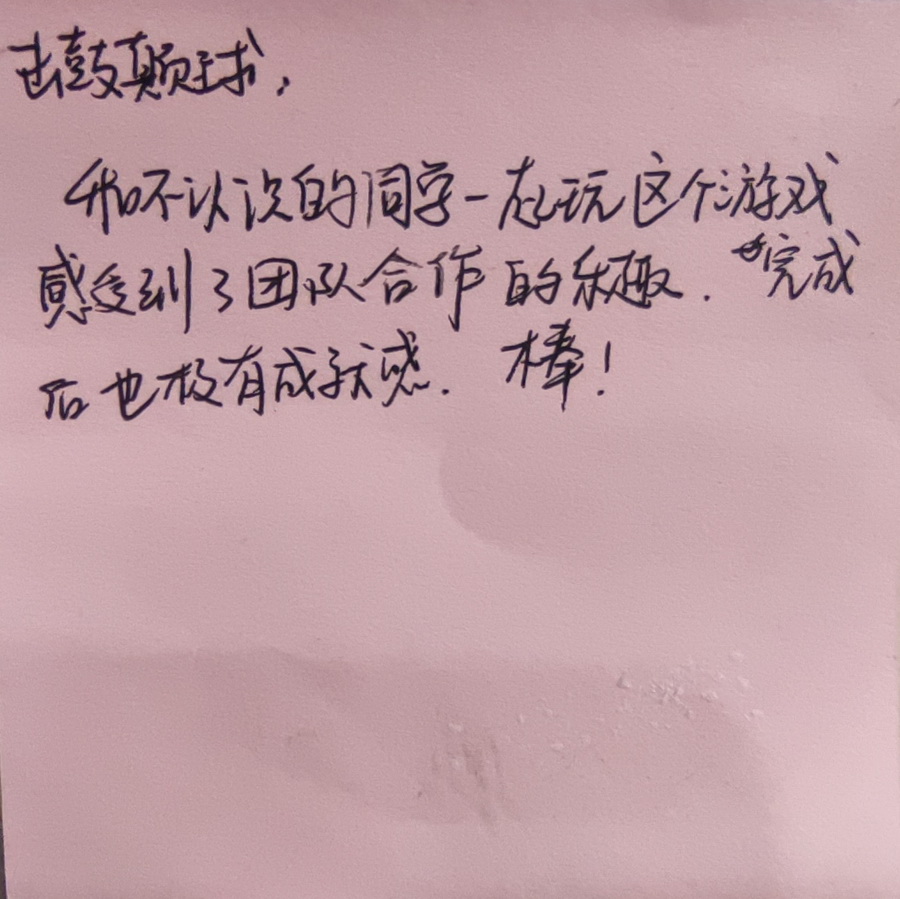 击鼓颠球，
和不认识的同学一起玩这个游戏
感受到了团队合作的乐趣．完成
后也极有成就感． 棒！